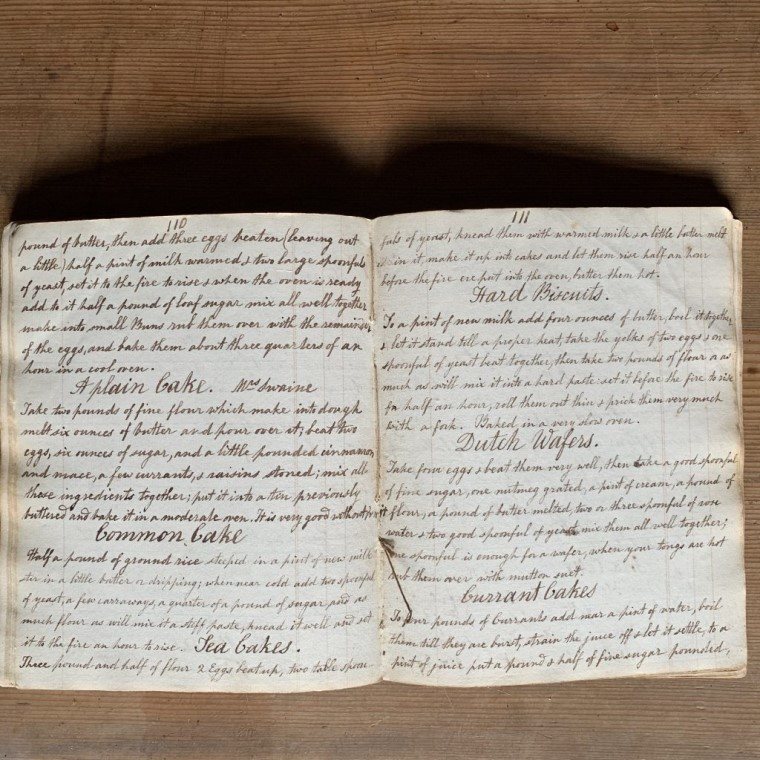 110
pound of butter, then add three eggs beaten (leaving out
a little) half a pint of milk warmed & two large spoonfuls
of yeast, set it to the fire to rise & when the oven is ready
add to it half a pound of loaf sugar mix all well together
make into small Buns rub them over with the remainder
of the eggs, and bake them about three quarters of an
hour in a cool oven.
A plain Cake. Mrs Swaine
Take two pounds of fine flour which make into dough
melt six ounces of butter and pour over it; beat two
eggs, six ounces of sugar, and a little pounded cinnamon
and mace, a few currants, & raisins stoned; mix all
these ingredients together; put it into a tin previously
buttered and bake it in a moderate oven. It is very good without fruit
Common Cake
Half a pound of ground rice steeped in a pint of new milk
stir in a little butter or dripping; when near cold add two spoonfuls
of yeast, a few carraways, a quarter of a pound of sugar, and as
much flour as will mix it a stiff paste, knead it well and set
it to the fire an hour to rise. Tea Cakes.
Three pound and half of flour 2 Eggs beat up, two table spoon-
111
fuls of yeast, knead them with warmed milk & a little butter melt
in it make it up into cakes and let them rise half an hour
before the fire ere put into the oven, butter them hot.
Hard Biscuits.
To a pint of new milk add four ounces of butter, boil it together,
& let it stand till a proper heat, take the yolks of two eggs & one
spoonful of yeast beat together, then take two pounds of flour or as
much as will mix it into a hard paste: set it before the fire to rise
for half an hour, roll them out thin & prick them very much
with a fork. Baked in a very slow oven.
Dutch Wafers.
Take four eggs & beat them very well, then take a good spoonful
of fine sugar, one nutmeg grated, a pint of cream, a pound of
flour, a pound of butter melted, two or three spoonful of rose
water & two good spoonful of yeast mix them all well together;
one spoonful is enough for a wafer, when your tongs are hot
rub them over with mutton suet.
Currant Cakes
To four pounds of Currants add near a pint of water, boil
them till they are burst, strain the juice off & let it settle, to a
pint of juice put a pound & half of fine sugar pounded,